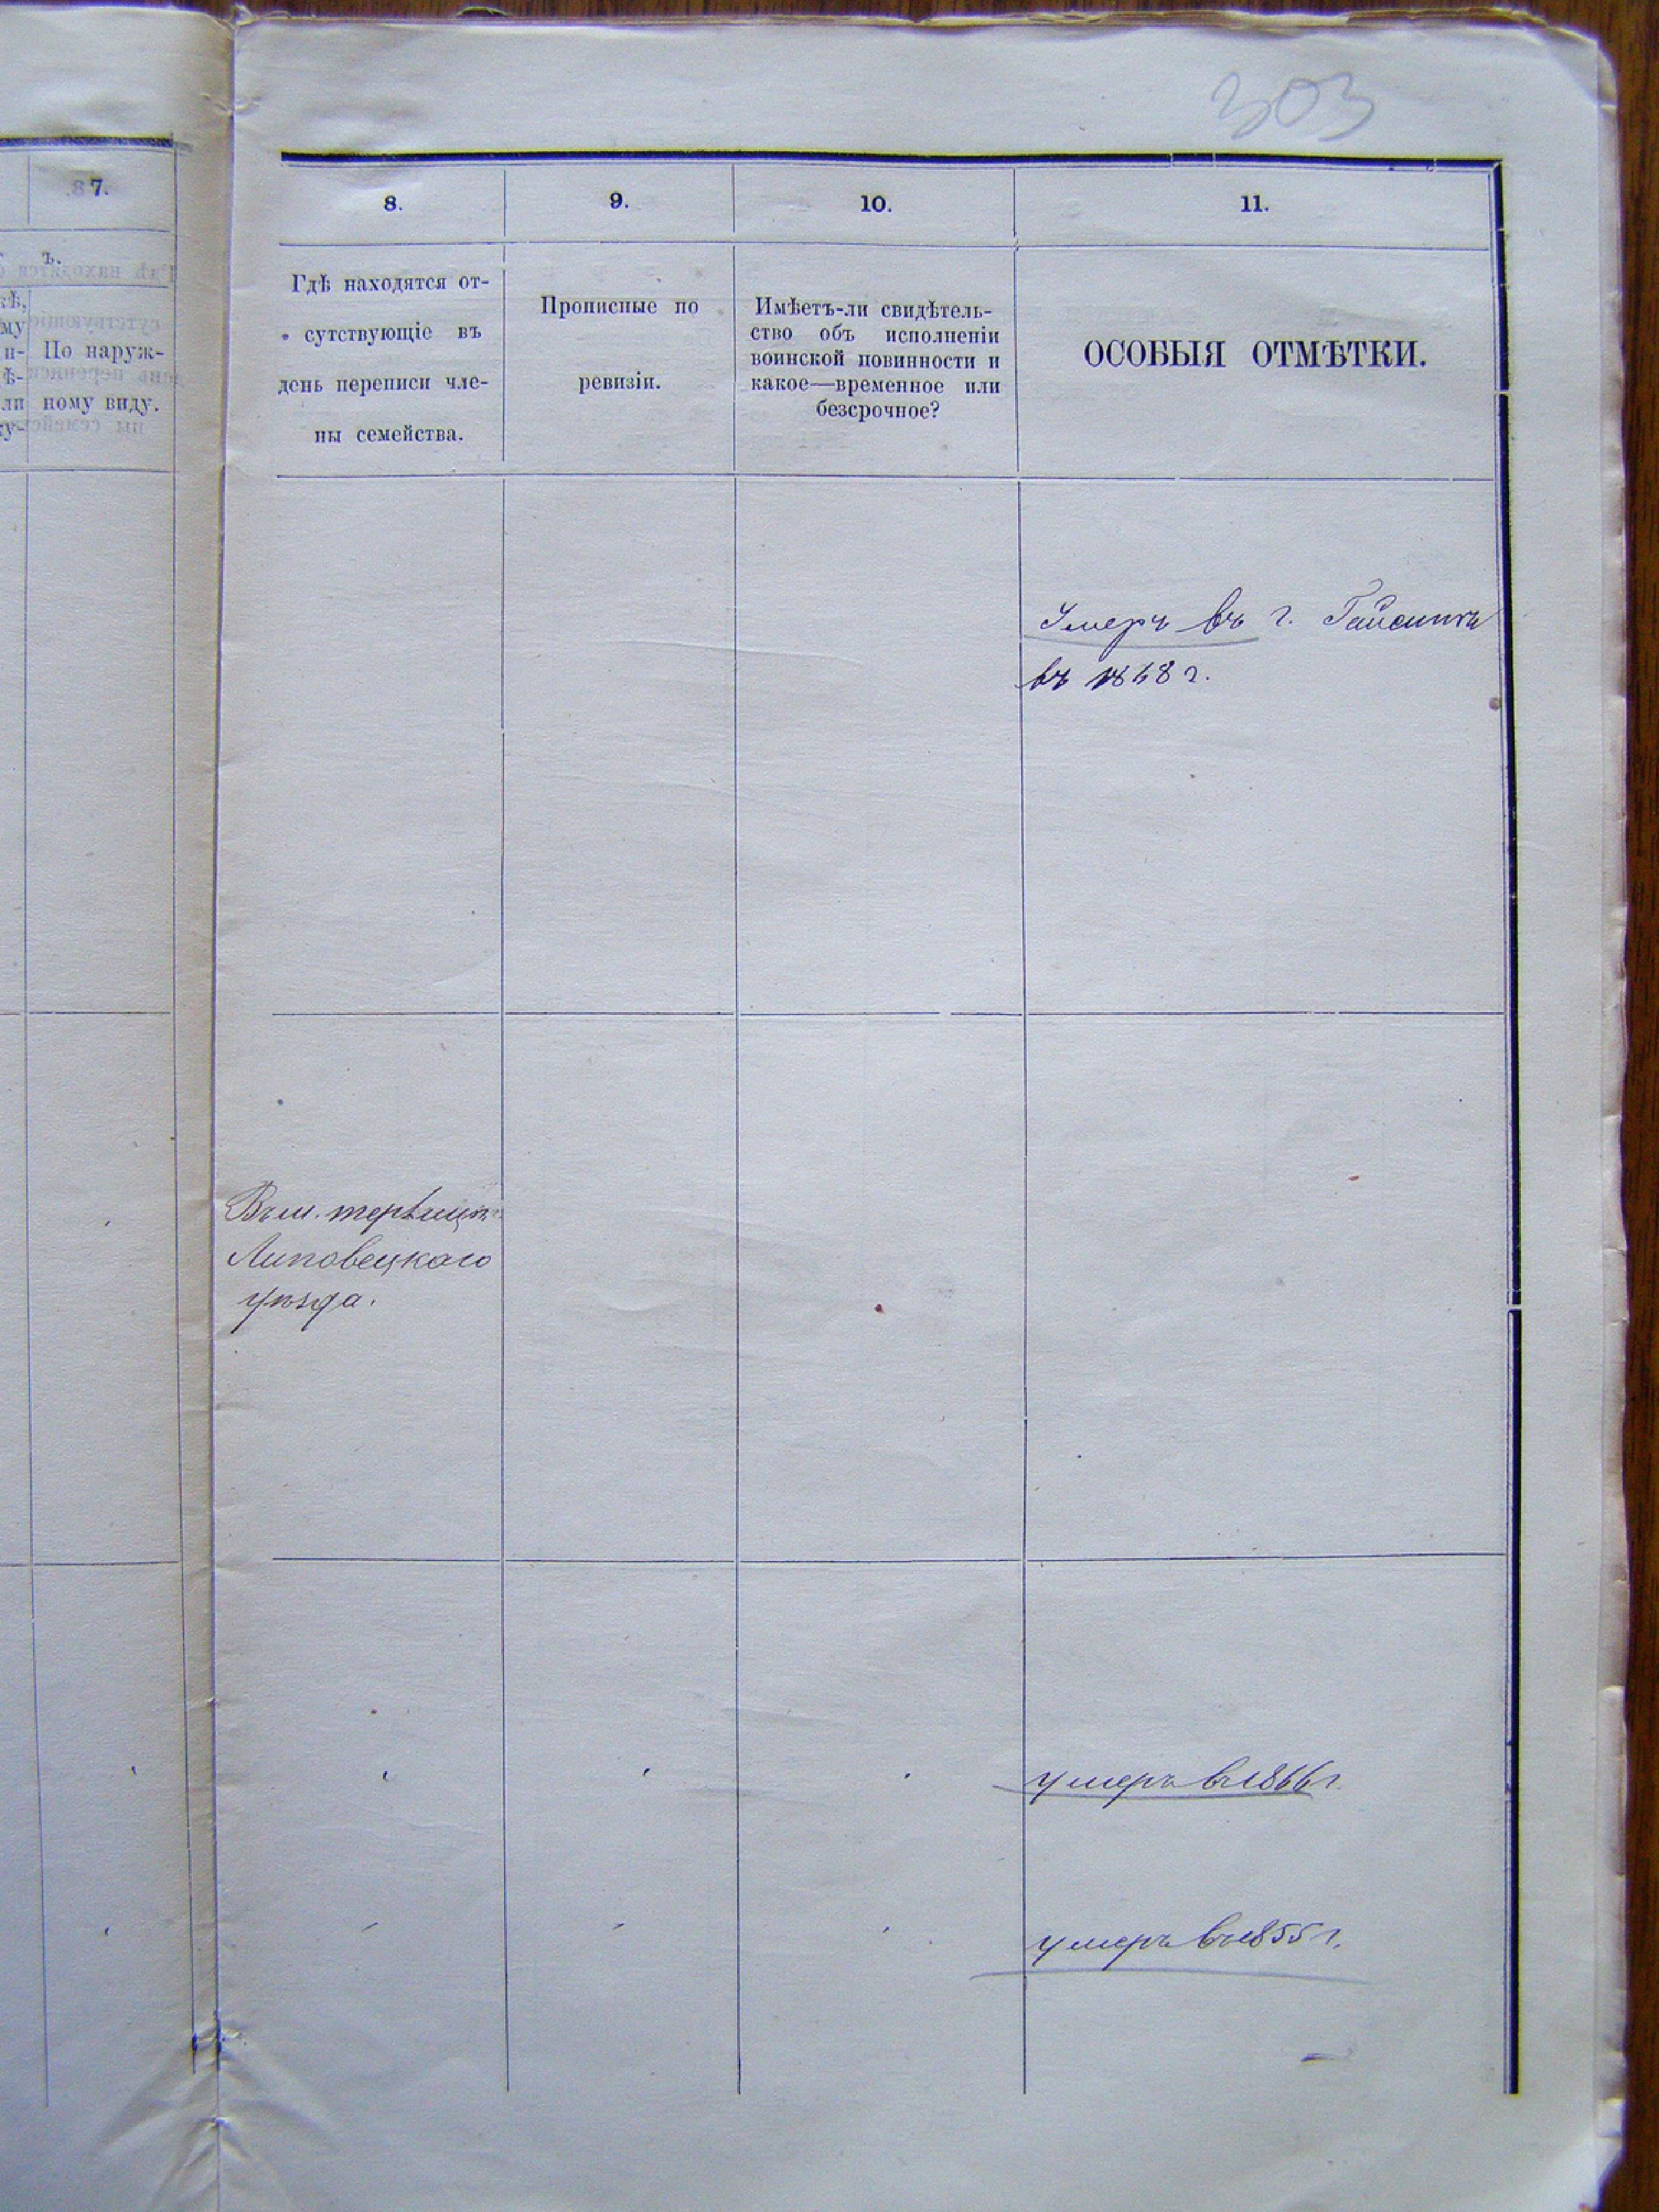 303
7.
8.
9.
10.
11.
ъ.
По наруж-
ному виду.
Гдѣ находятся от-
сутствующіе въ
день переписи чле-
ны семейства.
Прописные по
ревизіи.
Имѣетъ-ли свидѣтель-
ство объ исполненіи
воинской повинности и
какое—временное или
безсрочное?
ОСОБЫЯ ОТМѢТКИ.
Умеръ въ г. Гайсинѣ
въ 1868 г.
Въ м.
Липовецкаго
уѣзда.
умеръ въ 1866 г.
умеръ въ 1855 г.